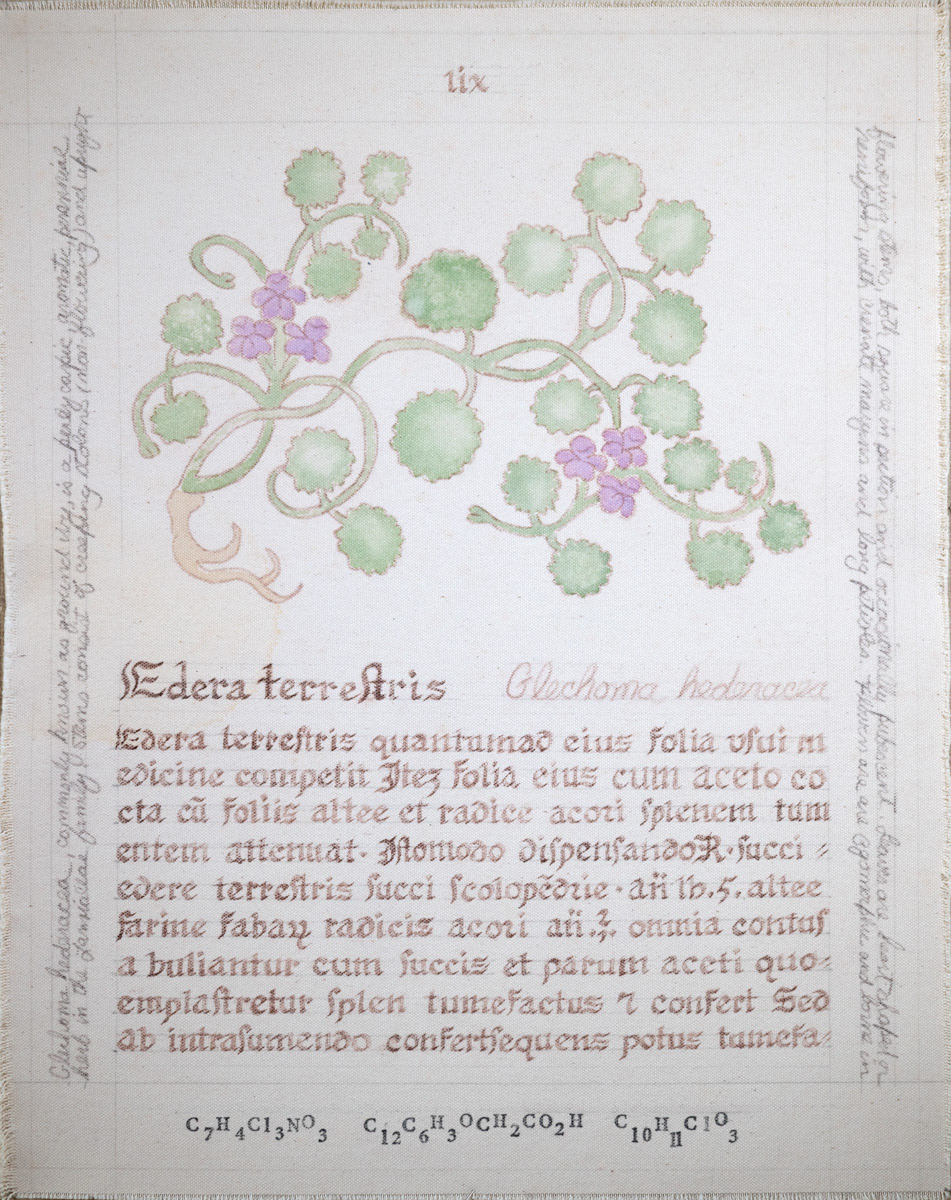 lix
Edera terrestris
Glechoma hederacea
Edera terrestris quantumad eius folia vsui m
edicine competit Iteʒ folia eius cum aceto co
cta cū foliis altee et radice acori splenem tum
entem attenuat. Istomodo dispensando℞.succi ⸗
edere terrestris succi scolopēdrie . an̄ lb.5. altee
farine fabaꝝ radicis acori an̄.ʒ. omnia contus
a buliantur cum succis et parum aceti quo⸗
emplastretur splen tumefactus ⁊ confert Sed
ab intrasumendo confertsequens potus tumefa⸗
Glechoma hederacea, commonly known as ground ivy, is a polycarpic, aromatic, perennial
herb in the Lamiaceae family. Stems consist of creeping stolons (non-flowering) and upright
flowering stems, both square in outline and occasionally pubescent. Leaves are heart shaped or
reniform, with crenate margins and long petioles. Flowers are zygomorphic and borne in
C₇H₄Cl₃NO₃ C₁₂C₆H₃OCH₂CO₂H C₁₀H₁₁ClO₃